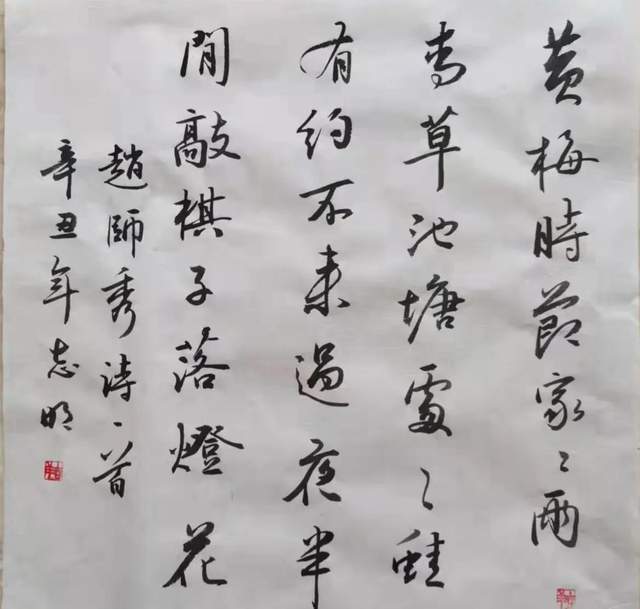 黄梅時節家〻雨
青草池塘處〻蛙
有約不来過夜半
閒敲棋子落燈花
趙師秀詩一首
辛丑年志明